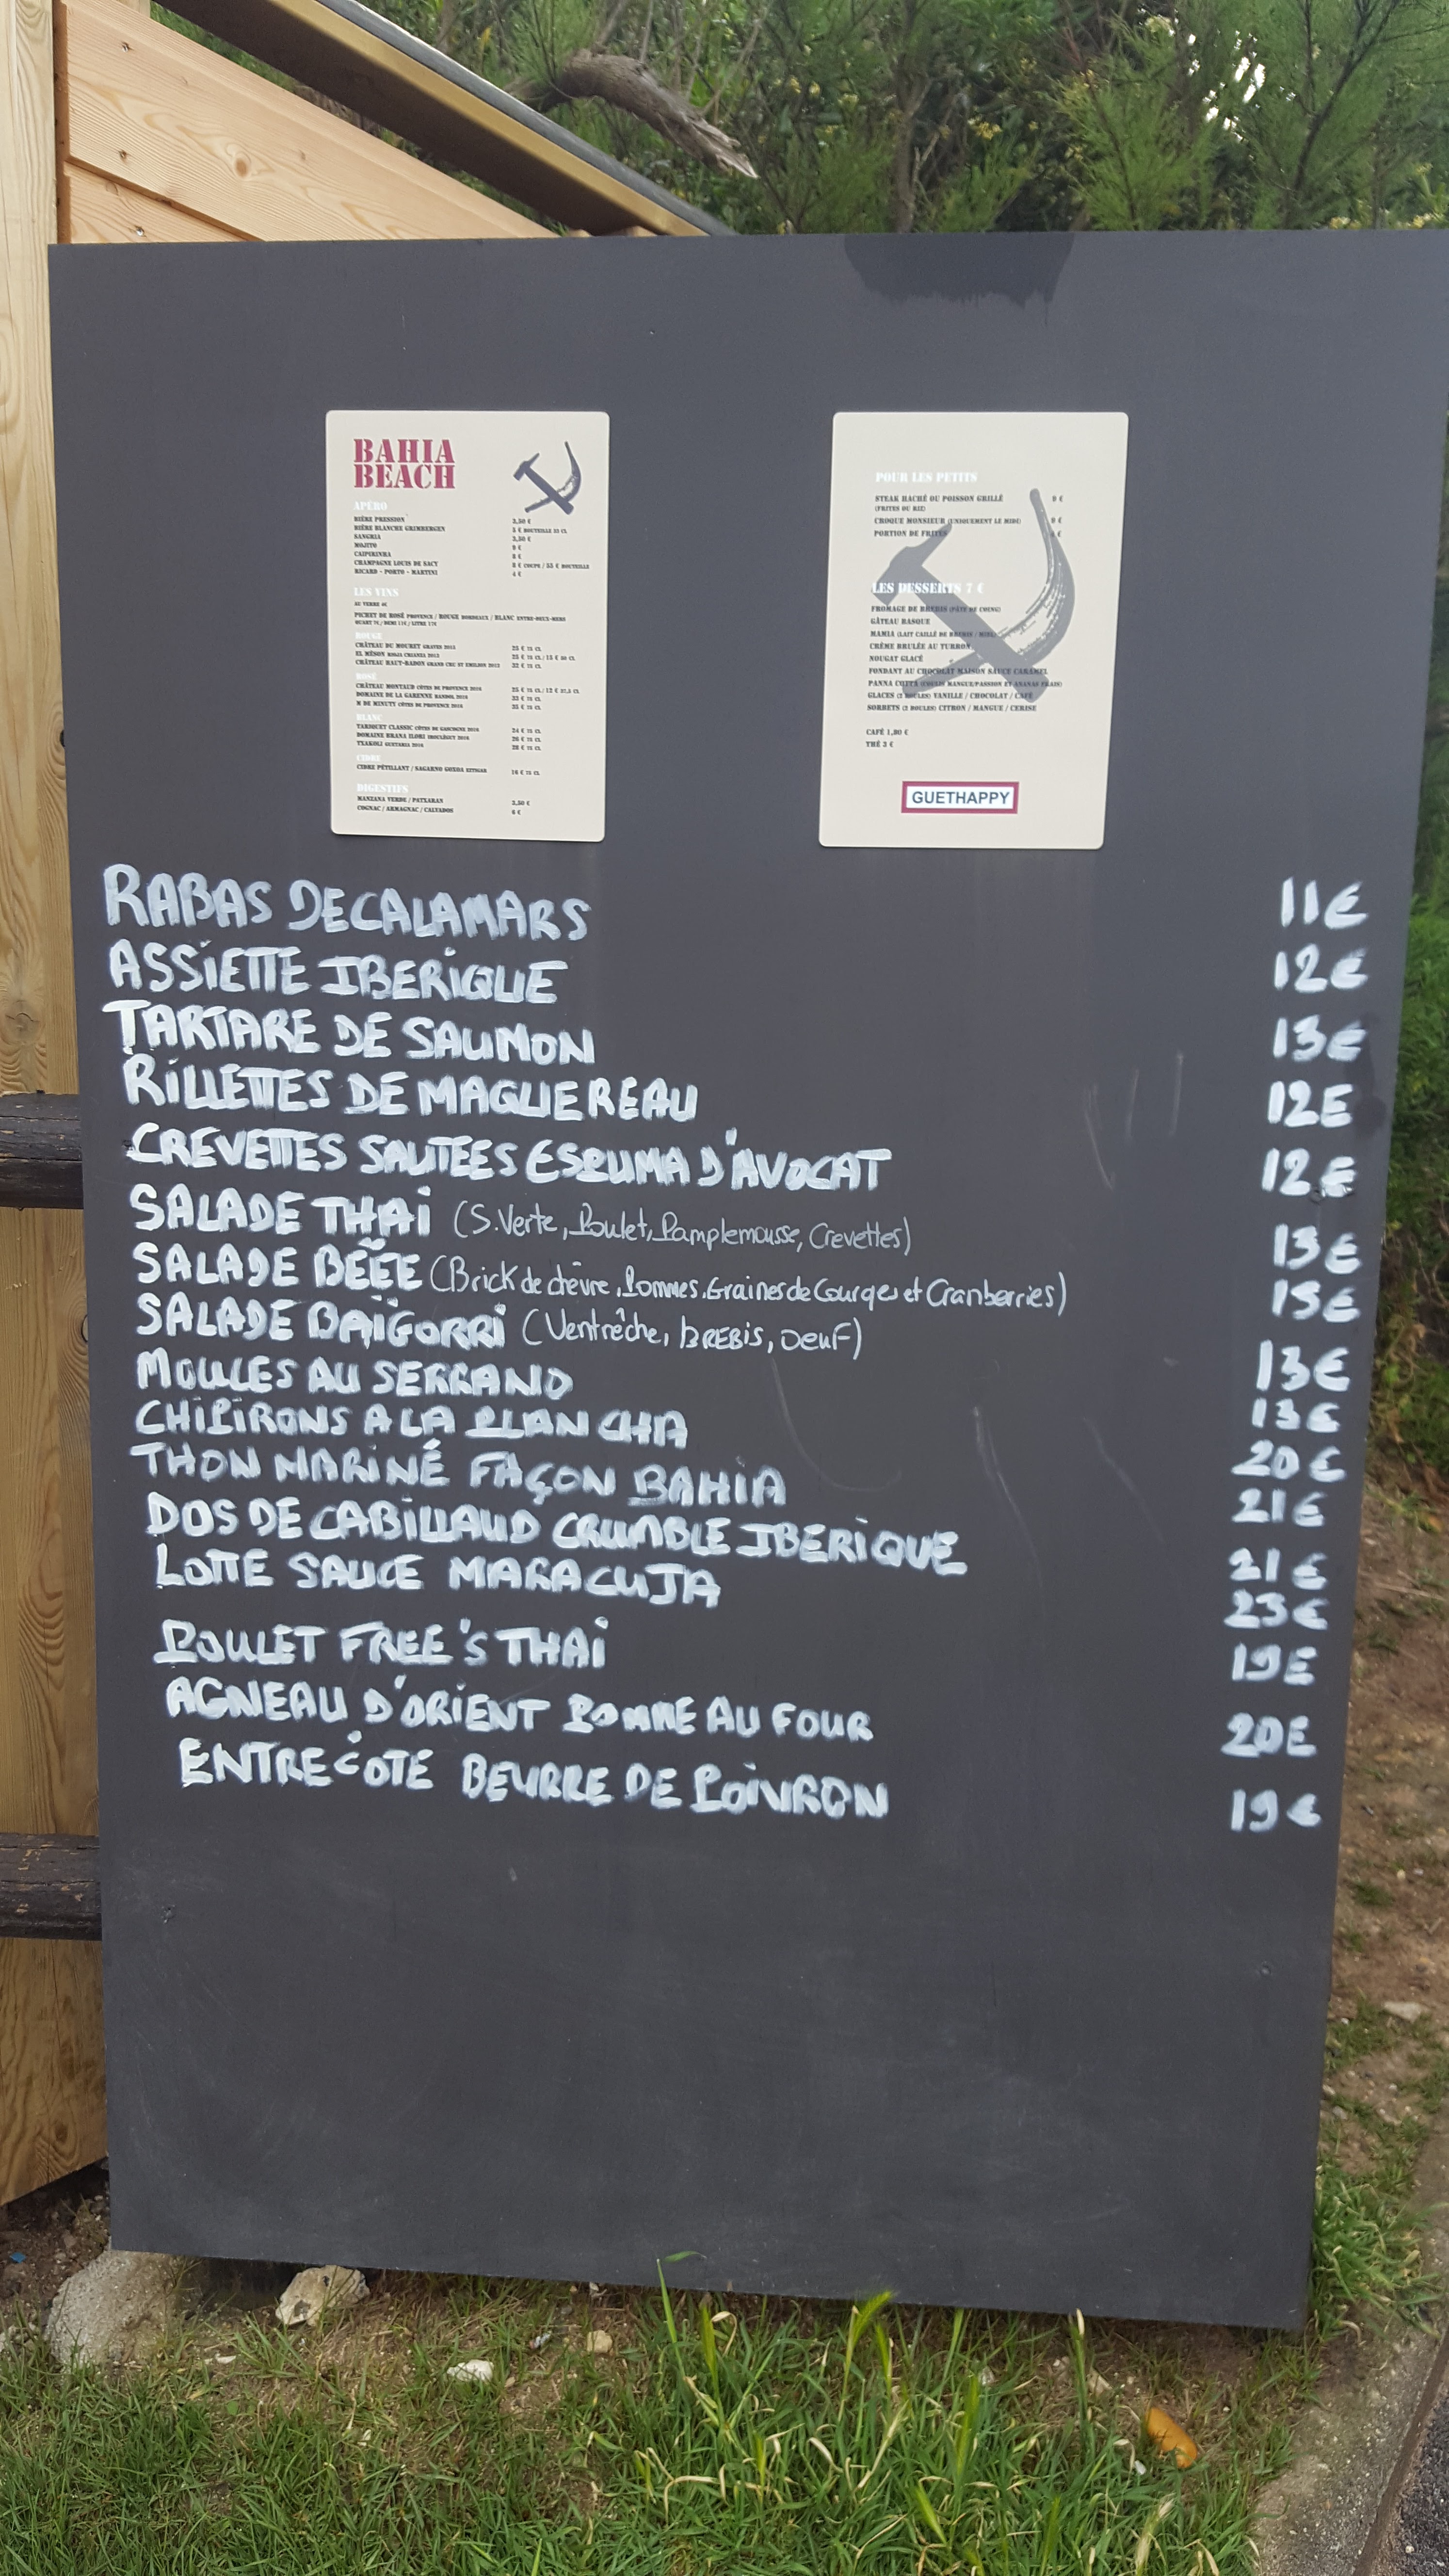 BAHIA
BEACH
APÉRO
BIÈRE PRESSION 3,50 €
BIÈRE BLANCHE GRIMBERGEN 5 € BOUTEILLE 25 CL
SANGRIA 3,50 €
MOJITO 9 €
CAIPIRINHA 8 €
CHAMPAGNE LOUIS DE SACY 8 € COUPE / 55 € BOUTEILLE
RICARD - PORTO - MARTINI 4 €
LES VINS
AU VERRE 4€
PICHET DE ROSÉ PROVENCE / ROUGE BORDEAUX / BLANC ENTRE-DEUX-MERS
QUART 7€ / DEMI 11€ / LITRE 17€
ROUGE
CHÂTEAU DU MOURET GRAVES 2015 25 € 75 CL
EL MÉSON RIOJA CRIANZA 2013 25 € 75 CL / 15 € 50 CL
CHÂTEAU HAUT-BADON GRAND CRU ST EMILION 2012 32 € 75 CL
ROSÉ
CHÂTEAU MONTAUD CÔTES DE PROVENCE 2016 25 € 75 CL / 12 € 37,5 CL
DOMAINE DE LA GARENNE BANDOL 2016 33 € 75 CL
M DE MINUTY CÔTES DE PROVENCE 2016 35 € 75 CL
BLANC
TARIQUET CLASSIC CÔTES DE GASCOGNE 2016 24 € 75 CL
DOMAINE BRANA ILORI IROULÉGUY 2016 26 € 75 CL
TXAKOLI GUETARIA 2016 28 € 75 CL
CIDRE
CIDRE PÉTILLANT / SAGARNO GOXOA EZTIGAR 16 € 75 CL
DIGESTIFS
MANZANA VERDE / PATXARAN 3,50 €
COGNAC / ARMAGNAC / CALVADOS 6 €
POUR LES PETITS
STEAK HACHÉ OU POISSON GRILLÉ 9 €
(FRITES OU RIZ)
CROQUE MONSIEUR (UNIQUEMENT LE MIDI) 9 €
PORTION DE FRITES €
LES DESSERTS 7 €
FROMAGE DE BREBIS (PÂTE DE COING)
GÂTEAU BASQUE
MAMIA (LAIT CAILLÉ DE BREBIS / MIEL)
CRÈME BRULÉE AU TURRON
NOUGAT GLACÉ
FONDANT AU CHOCOLAT MAISON SAUCE CARAMEL
PANNA COTTA (COULIS MANGUE/PASSION ET ANANAS FRAIS)
GLACES (2 BOULES) VANILLE / CHOCOLAT / CAFÉ
SORBETS (2 BOULES) CITRON / MANGUE / CERISE
CAFÉ 1,80 €
THÉ 3 €
GUETHAPPY
RABAS DE CALAMARS 11€
ASSIETTE IBERIQUE 12€
TARTARE DE SAUMON 13€
RILLETTES DE MAQUEREAU 12€
CREVETTES SAUTEES ESPUMA D'AVOCAT 12€
SALADE THAI (S.Verte, Poulet, Pamplemousse, Crevettes) 13€
SALADE BÊËE (Brick de chèvre, Pommes, Graines de Courges et Cranberries) 15€
SALADE BAÏGORRI (Ventrêche, BREBIS, OEUF) 13€
MOULES AU SERRANO 13€
CHIPIRONS A LA PLANCHA 20€
THON MARINÉ FAÇON BAHIA 21€
DOS DE CABILLAUD CRUMBLE IBERIQUE 21€
LOTTE SAUCE MARACUJA 23€
POULET FREE'S THAI 19€
AGNEAU D'ORIENT POMME AU FOUR 20€
ENTRECOTE BEURRE DE POIVRON 19€